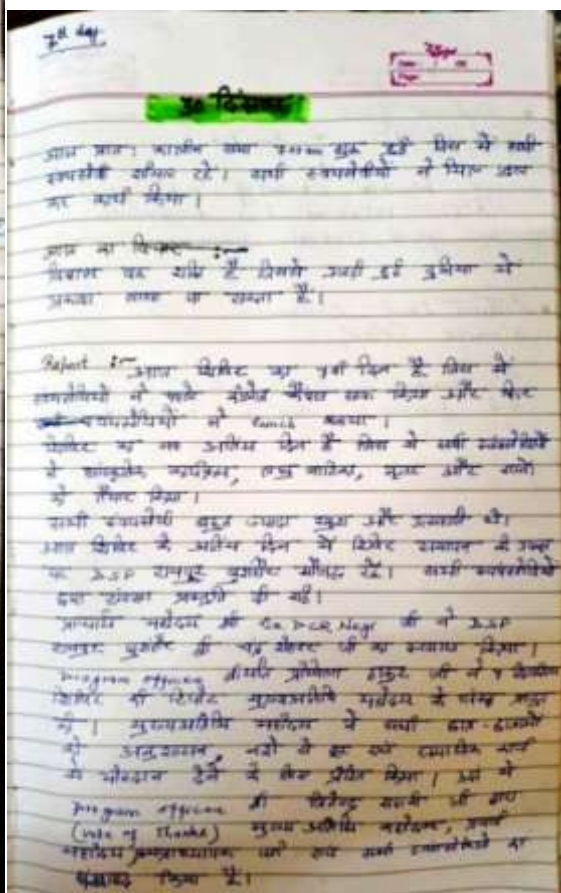 7th day
Date
Page
30 दिसम्बर
आज प्रातः कालीन सभा 7:00am शुरू हुई जिस में सभी
स्वयंसेवी शामिल रहे। सभी स्वयंसेवीयों ने
का कार्य किया।
आज का विचार :-
वह शक्ति है जिससे उजड़ी हुई दुनिया में
प्रकाश लाया जा सकता है।
Report :- आज शिविर का 7वां दिन है जिस में
स्वयंसेवियों ने पहले किया और फिर
स्वयंसेवियों ने lunch किया।
शिविर का यह अंतिम दिन है जिस में सभी स्वयंसेवियों
ने सांस्कृतिक कार्यक्रम, लघु नाटिका, नृत्य और गाने
को तैयार किया।
सभी स्वयंसेवी बहुत ज्यादा खुश और उत्साही थे।
आज शिविर के अंतिम दिन में शिविर समापन के
पर DSP रामपुर बुशहर मौजूद रहे। सभी स्वयंसेवियों
द्वारा प्रस्तुति दी गई।
प्राचार्य महोदय श्री Negi जी ने DSP
रामपुर बुशहर श्री चंद्र शेखर जी का स्वागत किया।
program officer ठाकुर जी ने 7 दिवसीय
शिविर की रिपोर्ट मुख्यअतिथि महोदय के समक्ष
की। मुख्यअतिथि महोदय ने सभी छात्र-छात्राओं
को अनुशासन, नशे से दूर एवं सामाजिक कार्य
में योगदान देने के लिए प्रेरित किया। अंत में
program officer श्री जी द्वारा
(vote of thanks) मुख्य अतिथि महोदय,
महोदय एवं सभी स्वयंसेवियों का
धन्यवाद किया है।